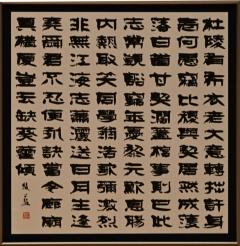 杜陵有布衣老大意轉拙許身
一何愚竊比稷與契居然成濩
落白首甘契闊蓋棺事則已此
志常覬豁窮年憂黎元歎息腸
內熱取笑同學翁浩歌彌激烈
非無江海志瀟灑送日月生逢
堯舜君不忍便永訣當今廊廟
具構廈豈云缺葵藿傾